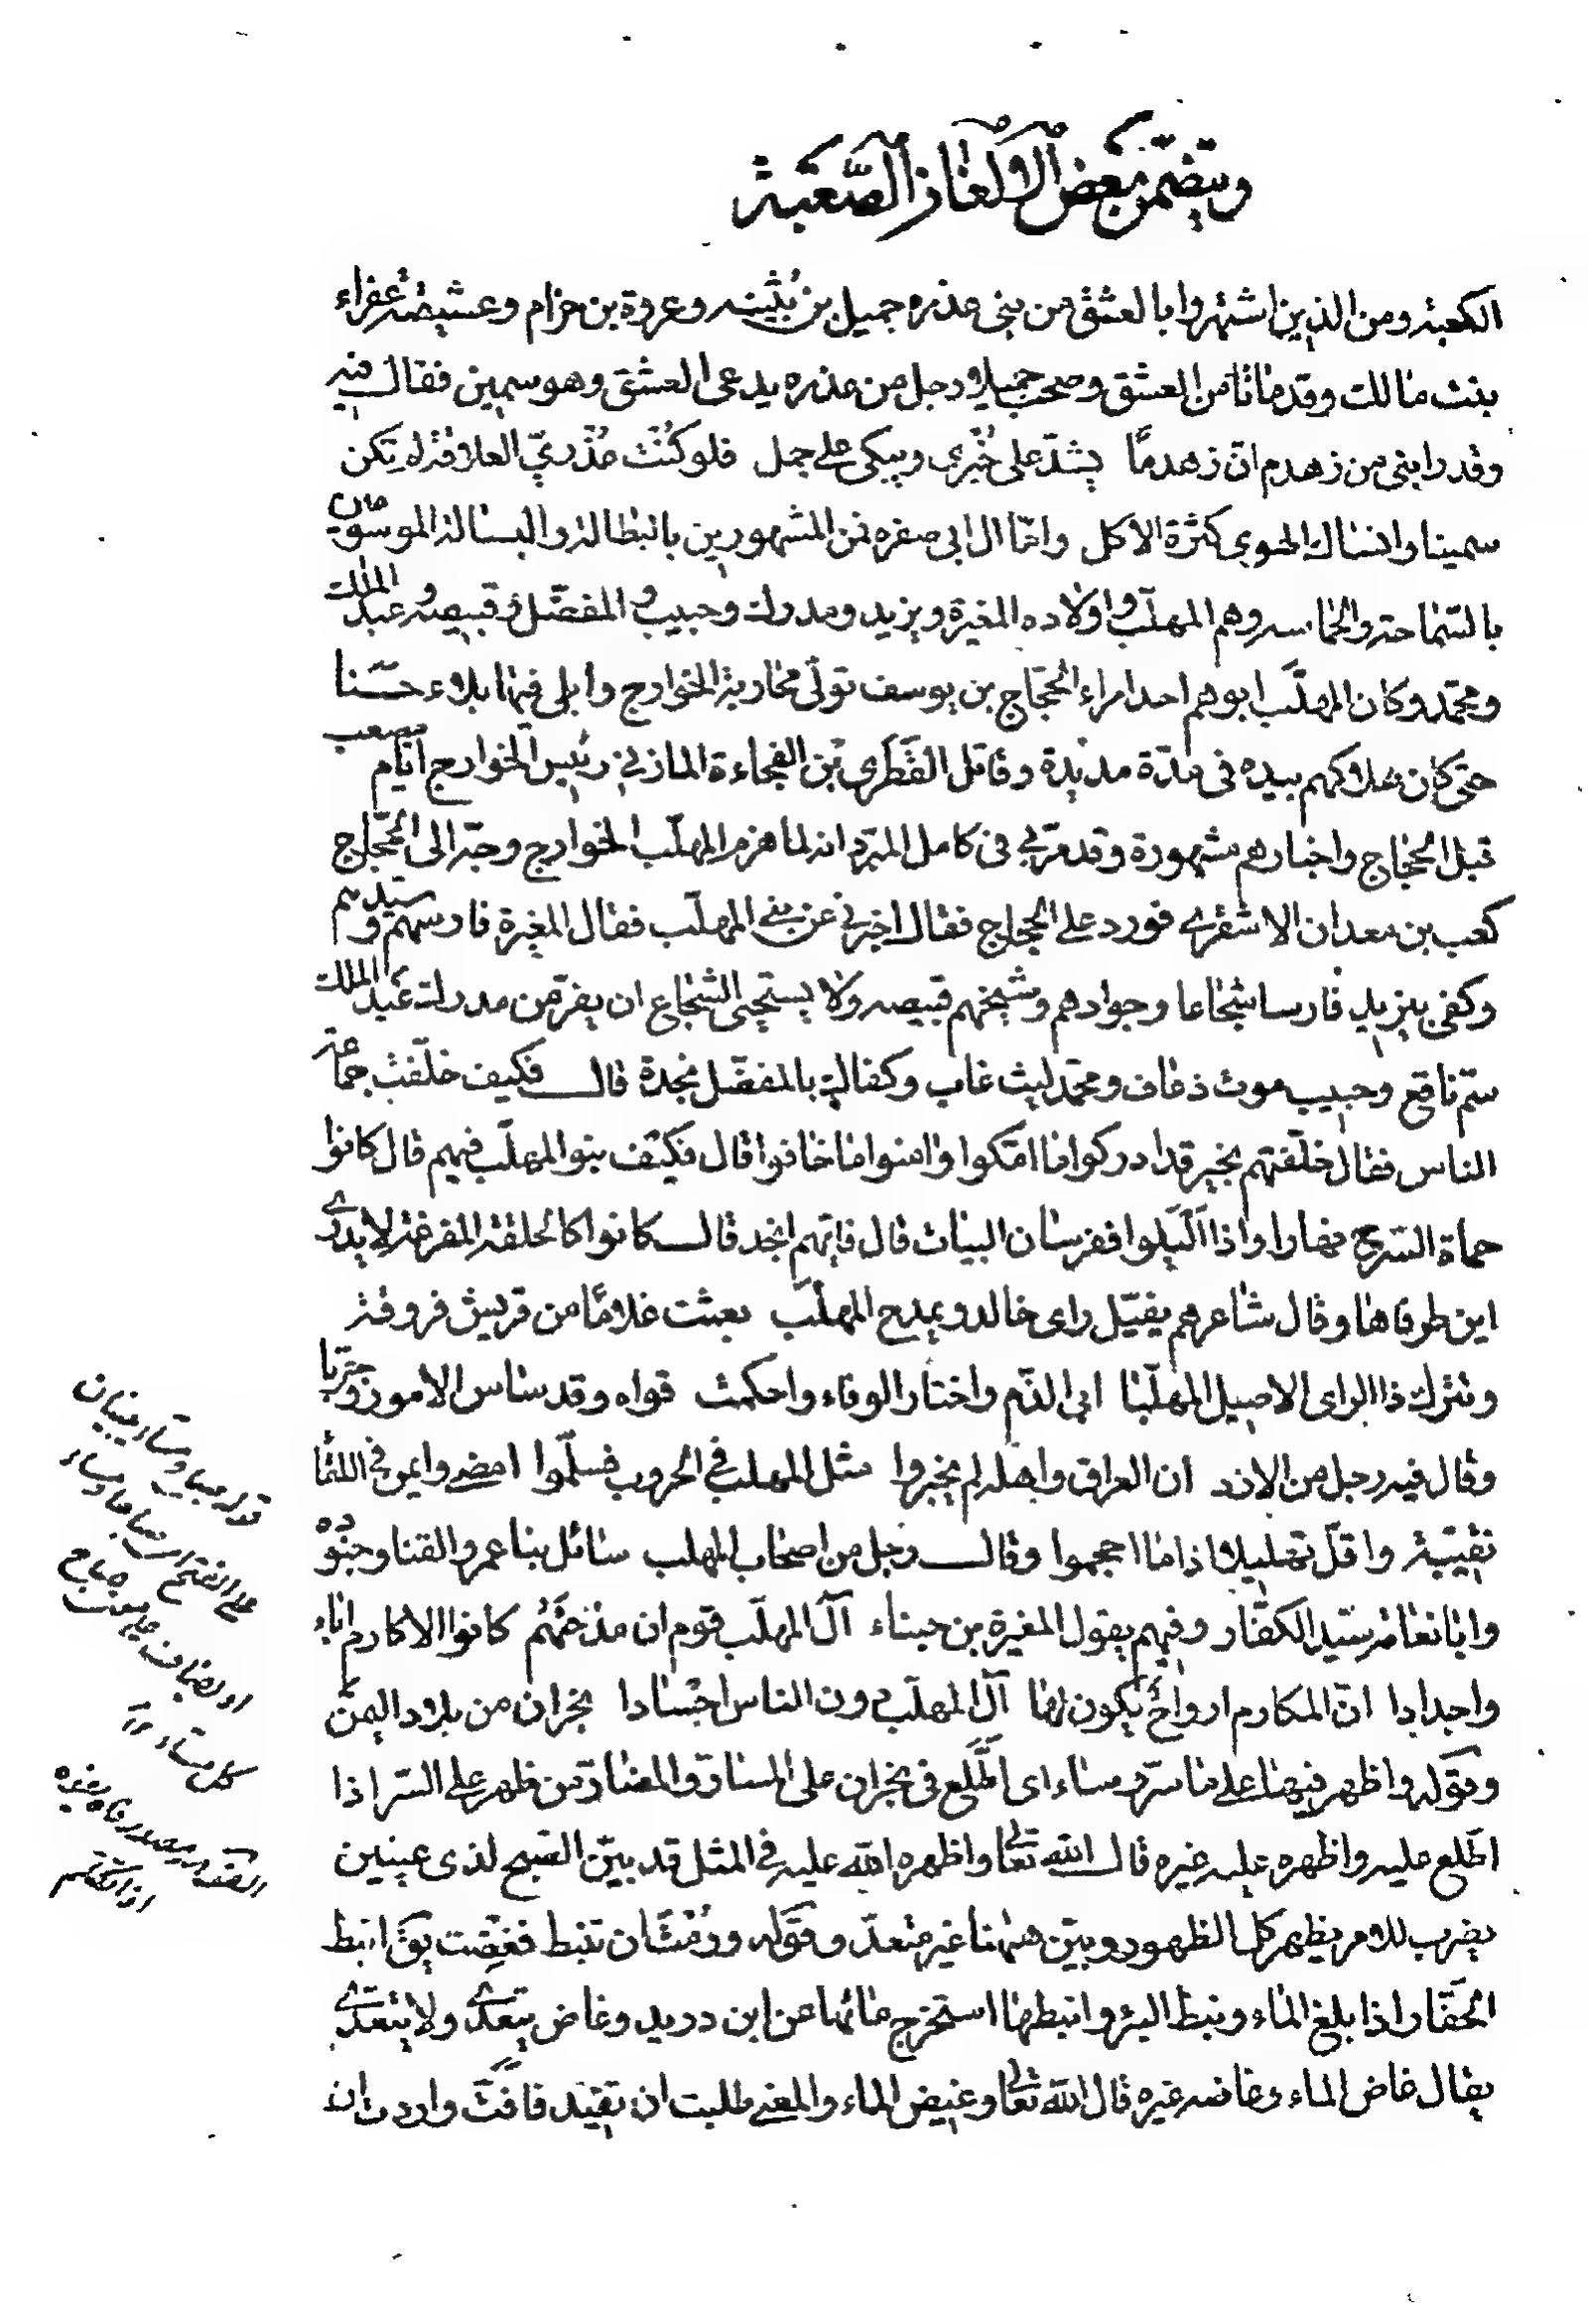 ويتضمن بعض الالغاز الصعبة
الكعبة ومن الذين اشتهروا بالعشق من بنى عذره جميل بن بثينه وعروة بن حزام وعشيقته عفراء
بنت مالك وقد ماتا من العشق وصحب جميلا رجل من عذره يدعى العشق وهو سمين فقال فيه
وقد رابنى من زهدم ان زهدما يشد على خبزى ويبكى على جمل فلو كنت عذرى العلاقة لم تكن
سمينا وانساك الهوى كثرة الاكل واما ال ابى صفره فمن المشهورين بالبطالة والبسالة الموسومون
بالسماحة والحماسه وهم المهلب واولاده المغيرة ويزيد ومدرك وحبيب والمفضل وقبيصه وعبد الملك
ومحمد وكان المهلب ابوهم احد امراء الحجاج بن يوسف تولى محاربة الخوارج وابلى فيها بلاء حسنا
حتى كان هلاكهم بيده فى مدة مديدة وقاتل القطرى بن الفجاءة المازنى رئيس الخوارج ايام مصعب
قبل الحجاج واخبارهم مشهورة وقد مر بى فى كامل المبرد انه لما هزم المهلب الخوارج وجه الى الحجاج
كعب بن معدان الاشقرى فورد على الحجاج فقال اخبرنى عن بنى المهلب فقال المغيرة فارسهم وسيدهم
وكفى بيزيد فارسا شجاعا وجوادهم وشيخهم قبيصه ولا يستحيى الشجاع ان يفر من مدرك عبد الملك
سم ناقع وحبيب موت ذعاف ومحمد ليث غاب وكفاك بالمفضل نجدة قال فكيف خلفت جماعة
الناس فقال خلفتهم بخير قد ادركوا ما املوا وامنوا ما خافوا قال فكيف بنو المهلب فيهم قال كانوا
حماة السرح نهارا واذا اليلوا ففرسان البيات قال فايهم انجد قال كانوا كالحلقة المفرغة لا يدرى
اين طرفاها وقال شاعرهم يفيل راى خالد ويمدح المهلب بعثت غلاما من قريش فروقة
وتترك ذا الراى الاصيل المهلبا ابى الذم واختار الوفاء واحكمت قواه وقد ساس الامور وجربا
وقال فيه رجل من الازد ان العراق واهله لم يخبروا مثل المهلب فى الحروب فسلموا امضى وايمن فى اللقا
نقيبة واقل تهليلا اذا ما احجموا وقال رجل من اصحاب المهلب سائل بنا عمرو القنا وجنوده
وابا نعامة سيد الكفار وفيهم يقول المغيرة بن حبناء آل المهلب قوم ان مدحتهم كانوا الاكارم اباء
واجدادا ان المكارم ارواح يكون لها آل المهلب دون الناس اجسادا نجران من بلاد اليمن
وقوله واظهر فيها على ما سر وساء اى اطلع فى نجران على السار والضار من ظهر على السر اذا
اطلع عليه واظهره عليه غيره قال الله تعالى واظهره الله عليه فى المثل قد بين الصبح لذى عينين
يضرب للامر يظهر كل الظهور وبين ههنا غير متعد وقوله ورمت ان تنبط فغيضت يق انبط
الحفار اذا بلغ الماء ونبط البئر وانبطها استخرج مائها عن ابن دريد وغاض يتعدى ولا يتعدى
يقال غاض الماء وغاضه غيره قال الله تعالى وغيض الماء والمعنى طلبت ان تفيد فافت واردت ان